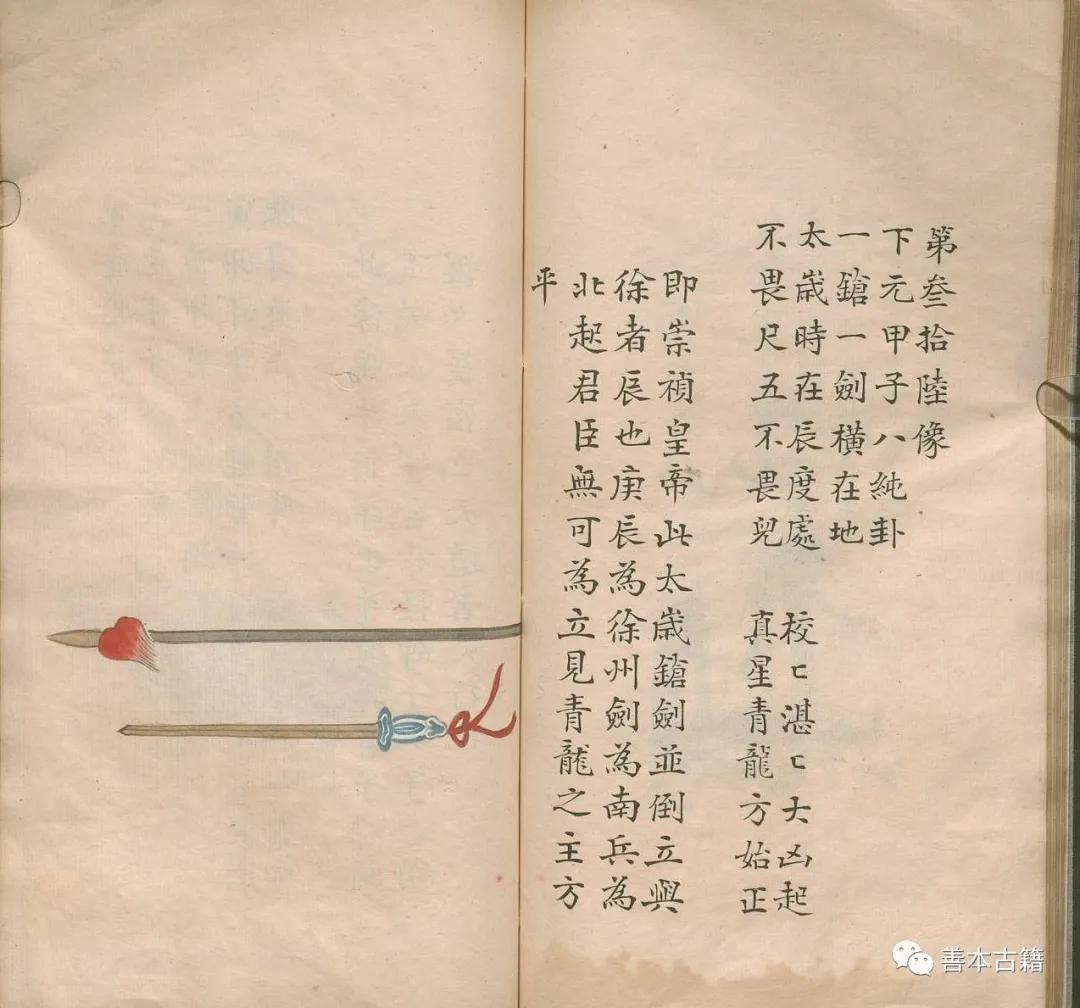 第叁拾陸像
下元甲子八純卦
一鎗一劍橫在地
太歲時在辰度處　校㇄湛㇄大凶起
不畏尺五不畏兒　真星青龍方始正
即崇禎皇帝此太歲鎗劍並倒立與
徐者辰也庚辰為徐州劍為南兵為
北起君臣無可為立見青龍之主方
平
善本古籍